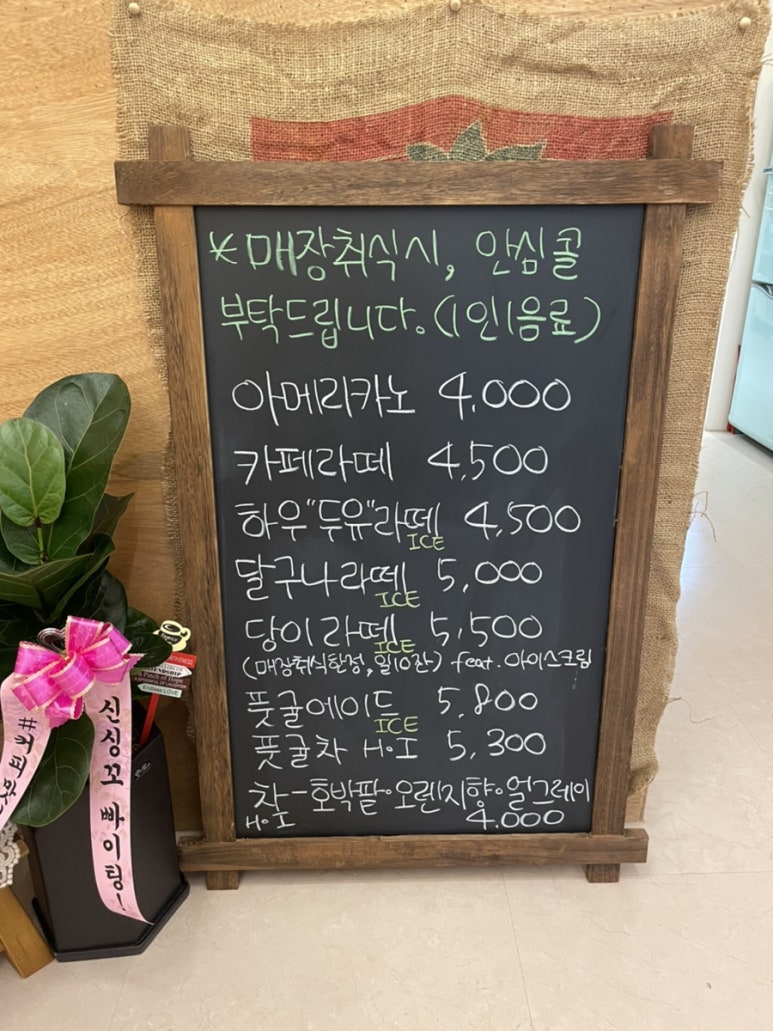 *매장취식시, 안심콜
부탁드립니다.(1인1음료)
아메리카노 4,000
카페라떼 4,500
하우"두유"라떼 4,500
ICE
달구나라떼 5,000
ICE
당이라떼 5,500
ICE
(매장취식한정, 일10잔) feat.아이스크림
풋귤에이드 5,800
ICE
풋귤차 H·I 5,300
차-호박팥·오렌지향·얼그레이
H·I 4,000
#커피맛
신싱꼬 빠이팅!
FAMILY
Endless LOVE